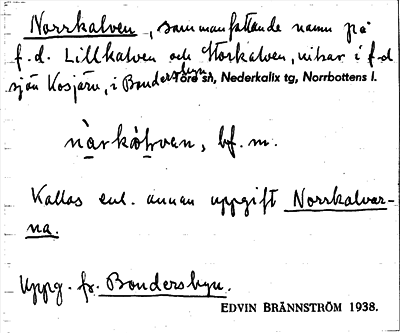 Norrkalven, sammanfattande namn på
f.d. Lillkalven och Storkalven, vikar i f.d
sjön Kosjärv, i Bondersbyn.
Töre sn, Nederkalix tg, Norrbottens l.
bf. m.
Kallas enl. annan uppgift Norrkalvar-
na.
Uppg. fr. Bondersbyn.
EDVIN BRÄNNSTRÖM 1938.